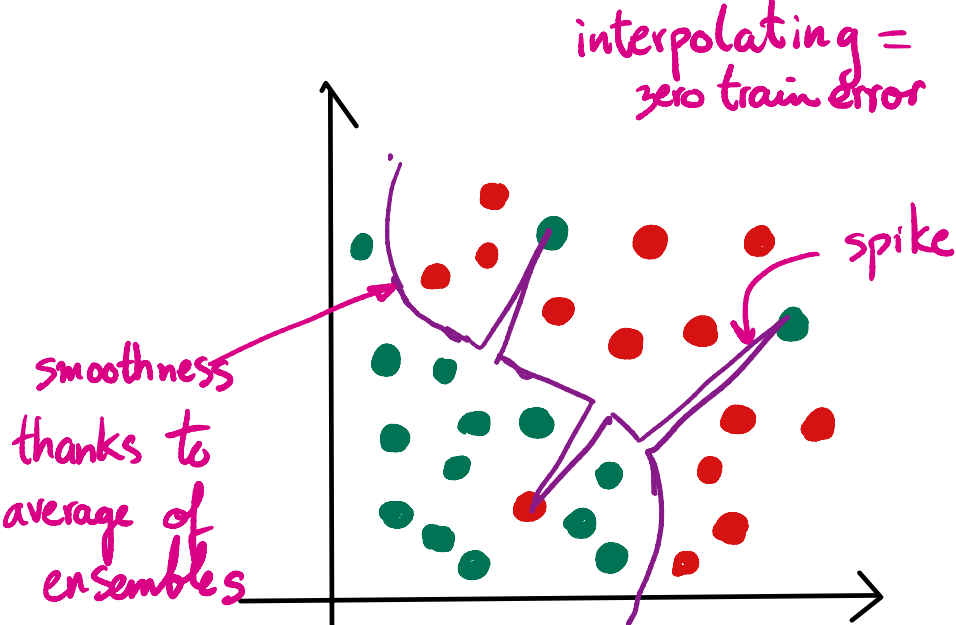 interpolating =
zero train error
spike
smoothness
thanks to
average of
ensembles